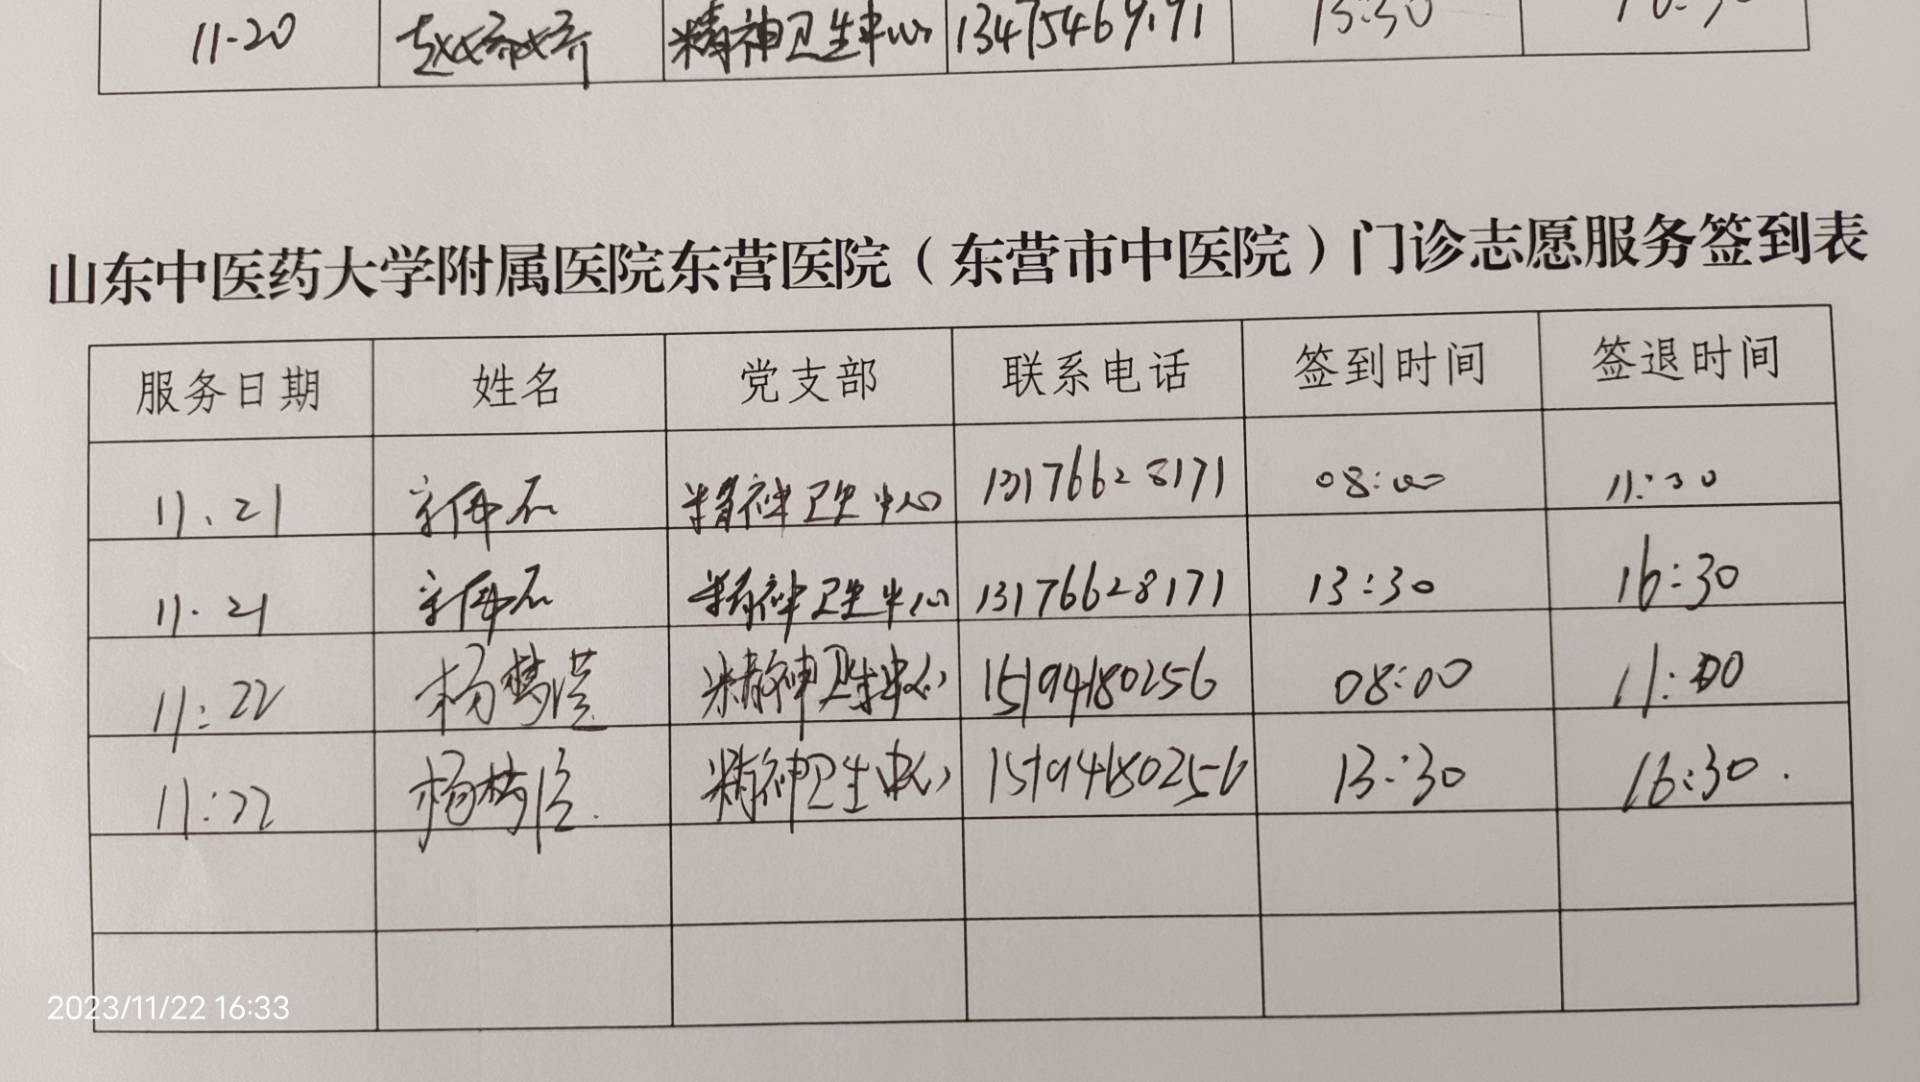 11-20 赵婷婷 精神卫生中心 13475469191 13:30
山东中医药大学附属医院东营医院（东营市中医院）门诊志愿服务签到表
服务日期 姓名 党支部 联系电话 签到时间 签退时间
11.21 精神卫生中心 13176628171 08:00 11:30
11.21 精神卫生中心 13176628171 13:30 16:30
11:22 杨梦滢 精神卫生中心 15194180256 08:00 11:00
11:22 杨梦 精神卫生中心 15194180256 13:30 16:30.
2023/11/22 16:33